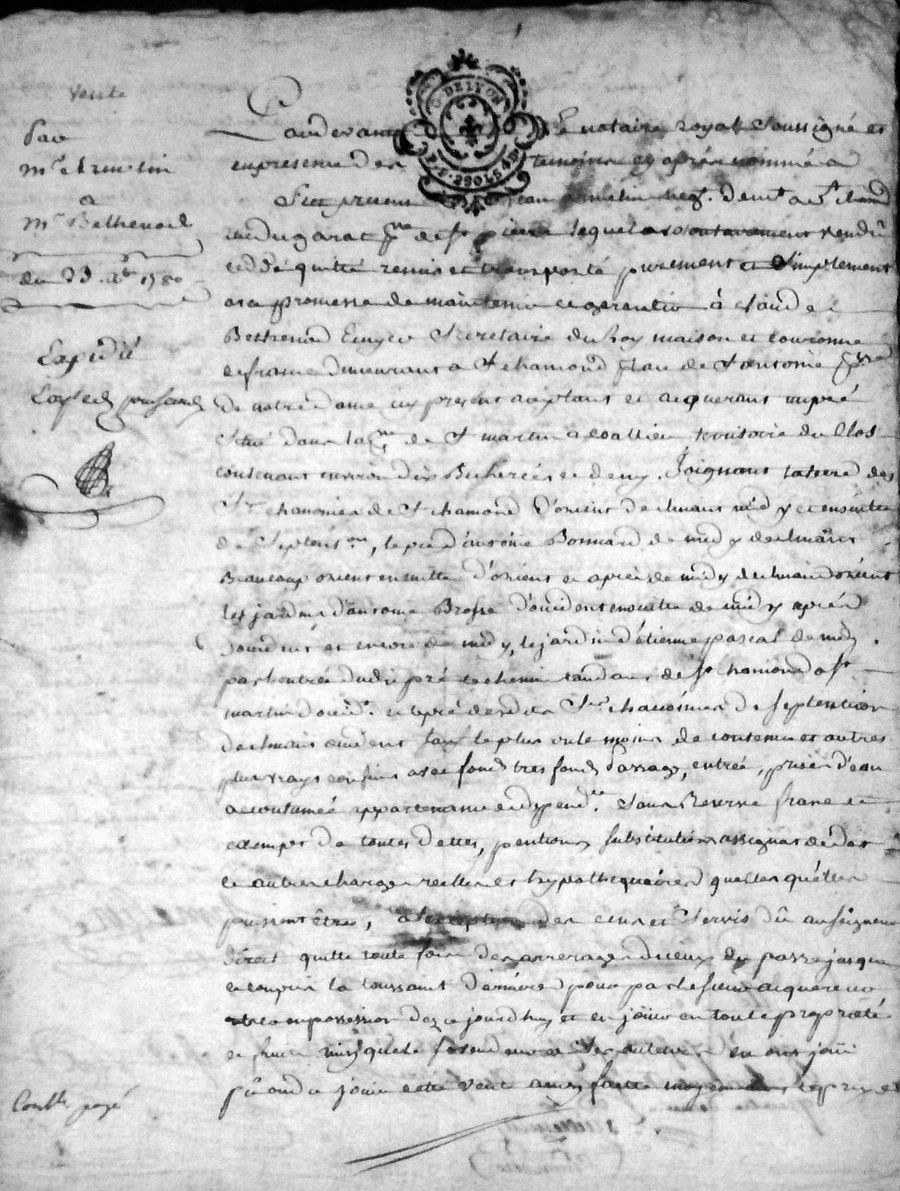 Vente
Par
Mr
à
Mr Bethenod
du 23 1780
Expédié
Controlle payé
G. DE LYON
Pardevant le notaire royal soussigné et
en presence des temoins cy après nommés a
été present negt. demt. a St. chamond
rue du garat psse de St pierre lequel a vendu
cedé quitté remis et transporté purement et simplement
avec promesse de maintenir et garantir à Claude
Bethenod Ecuyer Secretaire du Roy maison et couronne
de france demeurant a St chamond place de St antoine psse
de notre dame cy present acceptant et acquerant un pré
situé dans la psse de St martin a coallieu, territoire du Clos
contenant environ dix Bicherées et demy, Joignant la terre des
Srs chanoines de St chamond d'orient declinant midy et ensuitte
de Septent.on, le pré d'antoine Bonnard de midy declinant
Beaucoup orient ensuitte d'orient et après de midy declinant orient
les jardins d'antoine Brosse d'occident ensuitte de midy après
d'occident et encore de midy, le jardin d'étienne pascal de midy
par l'entrée dudit pré le chemin tendant de St chamond a St
martin d'occidt. et le pré desdits Srs chanoines de septentrion
declinant occident sauf le plus ou le moins de contenu et autres
plus vrays confins avec fonds tres fonds passage, entrée, prises d'eau
accoutumée appartenances et dependces. sans Reserve franc et
exempt de toutes dettes, pentions substitutions assignat de dot
et autres charges reelles et hypothequaires quelles qu'elles
puissent êtres, a l'exception des cens et servis dû au seigneur
direct quitte toute fois des arrerages d'iceux du passé jusques
et compris la toussaint derniere pour par le sieur acquereur
en possession dez ce jourd'huy et en jouir en toute propriété
et fruits ainsy que le sr vendeur et ses auteurs en ont joüi
pû ou dû jouir cette vente ainsy faitte moyennant le prix et